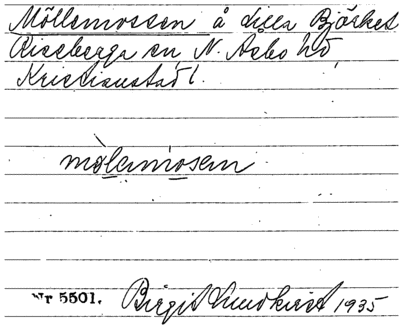 Möllemossen å Lilla Björket
Riseberga sn, N. Åsbo hd,
Kristianstad l.
mòlemosen
Nr 5501. Birgit Lundkvist 1935